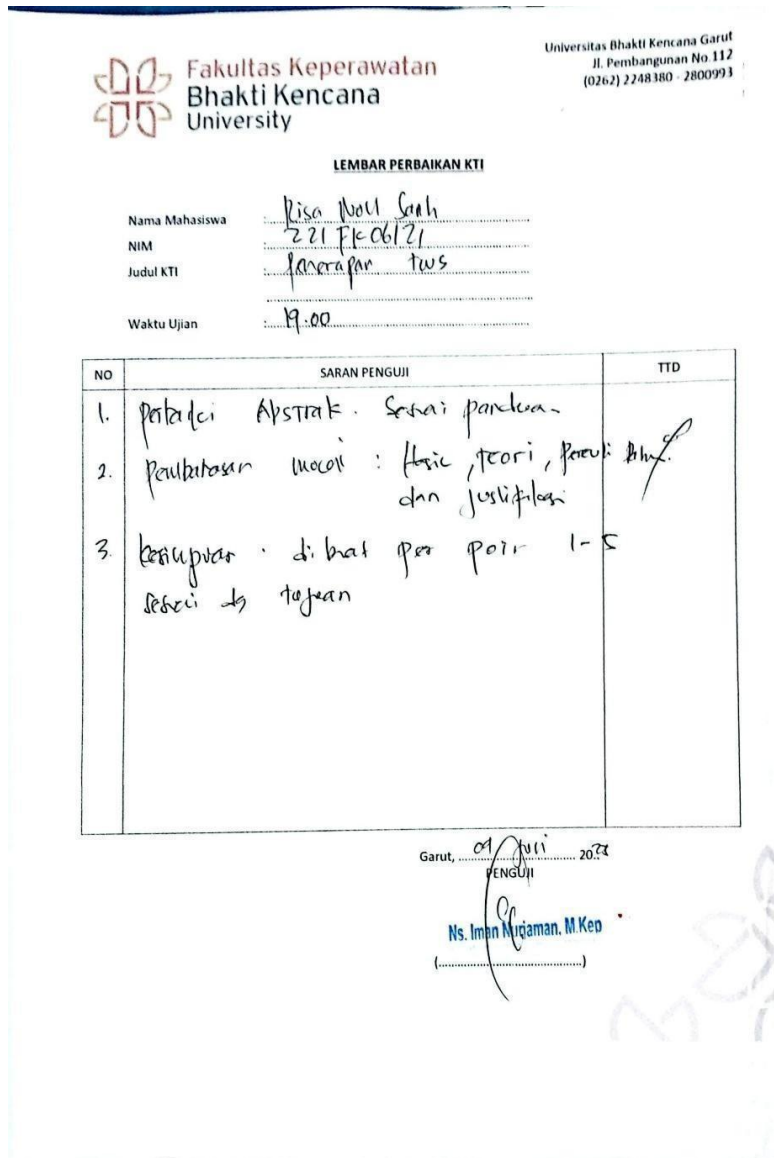 Fakultas Keperawatan
Bhakti Kencana
University
Universitas Bhakti Kencana Garut
Jl. Pembangunan No.112
(0262) 2248380 - 2800993
LEMBAR PERBAIKAN KTI
Nama Mahasiswa : Risa
NIM : 221FK06121
Judul KTI : Penerapan
Waktu Ujian : 19.00
NO SARAN PENGUJI TTD
1. Abstrak. Sesuai panduan
2. Pembahasan : Hasil, teori,
dan justifikasi
3. Kesimpulan . dibuat per poin 1-5
sesuai dg tujuan
Garut, 09 Juli 20
PENGUJI
Ns. Iman Nurjaman, M.Kep
(..........)